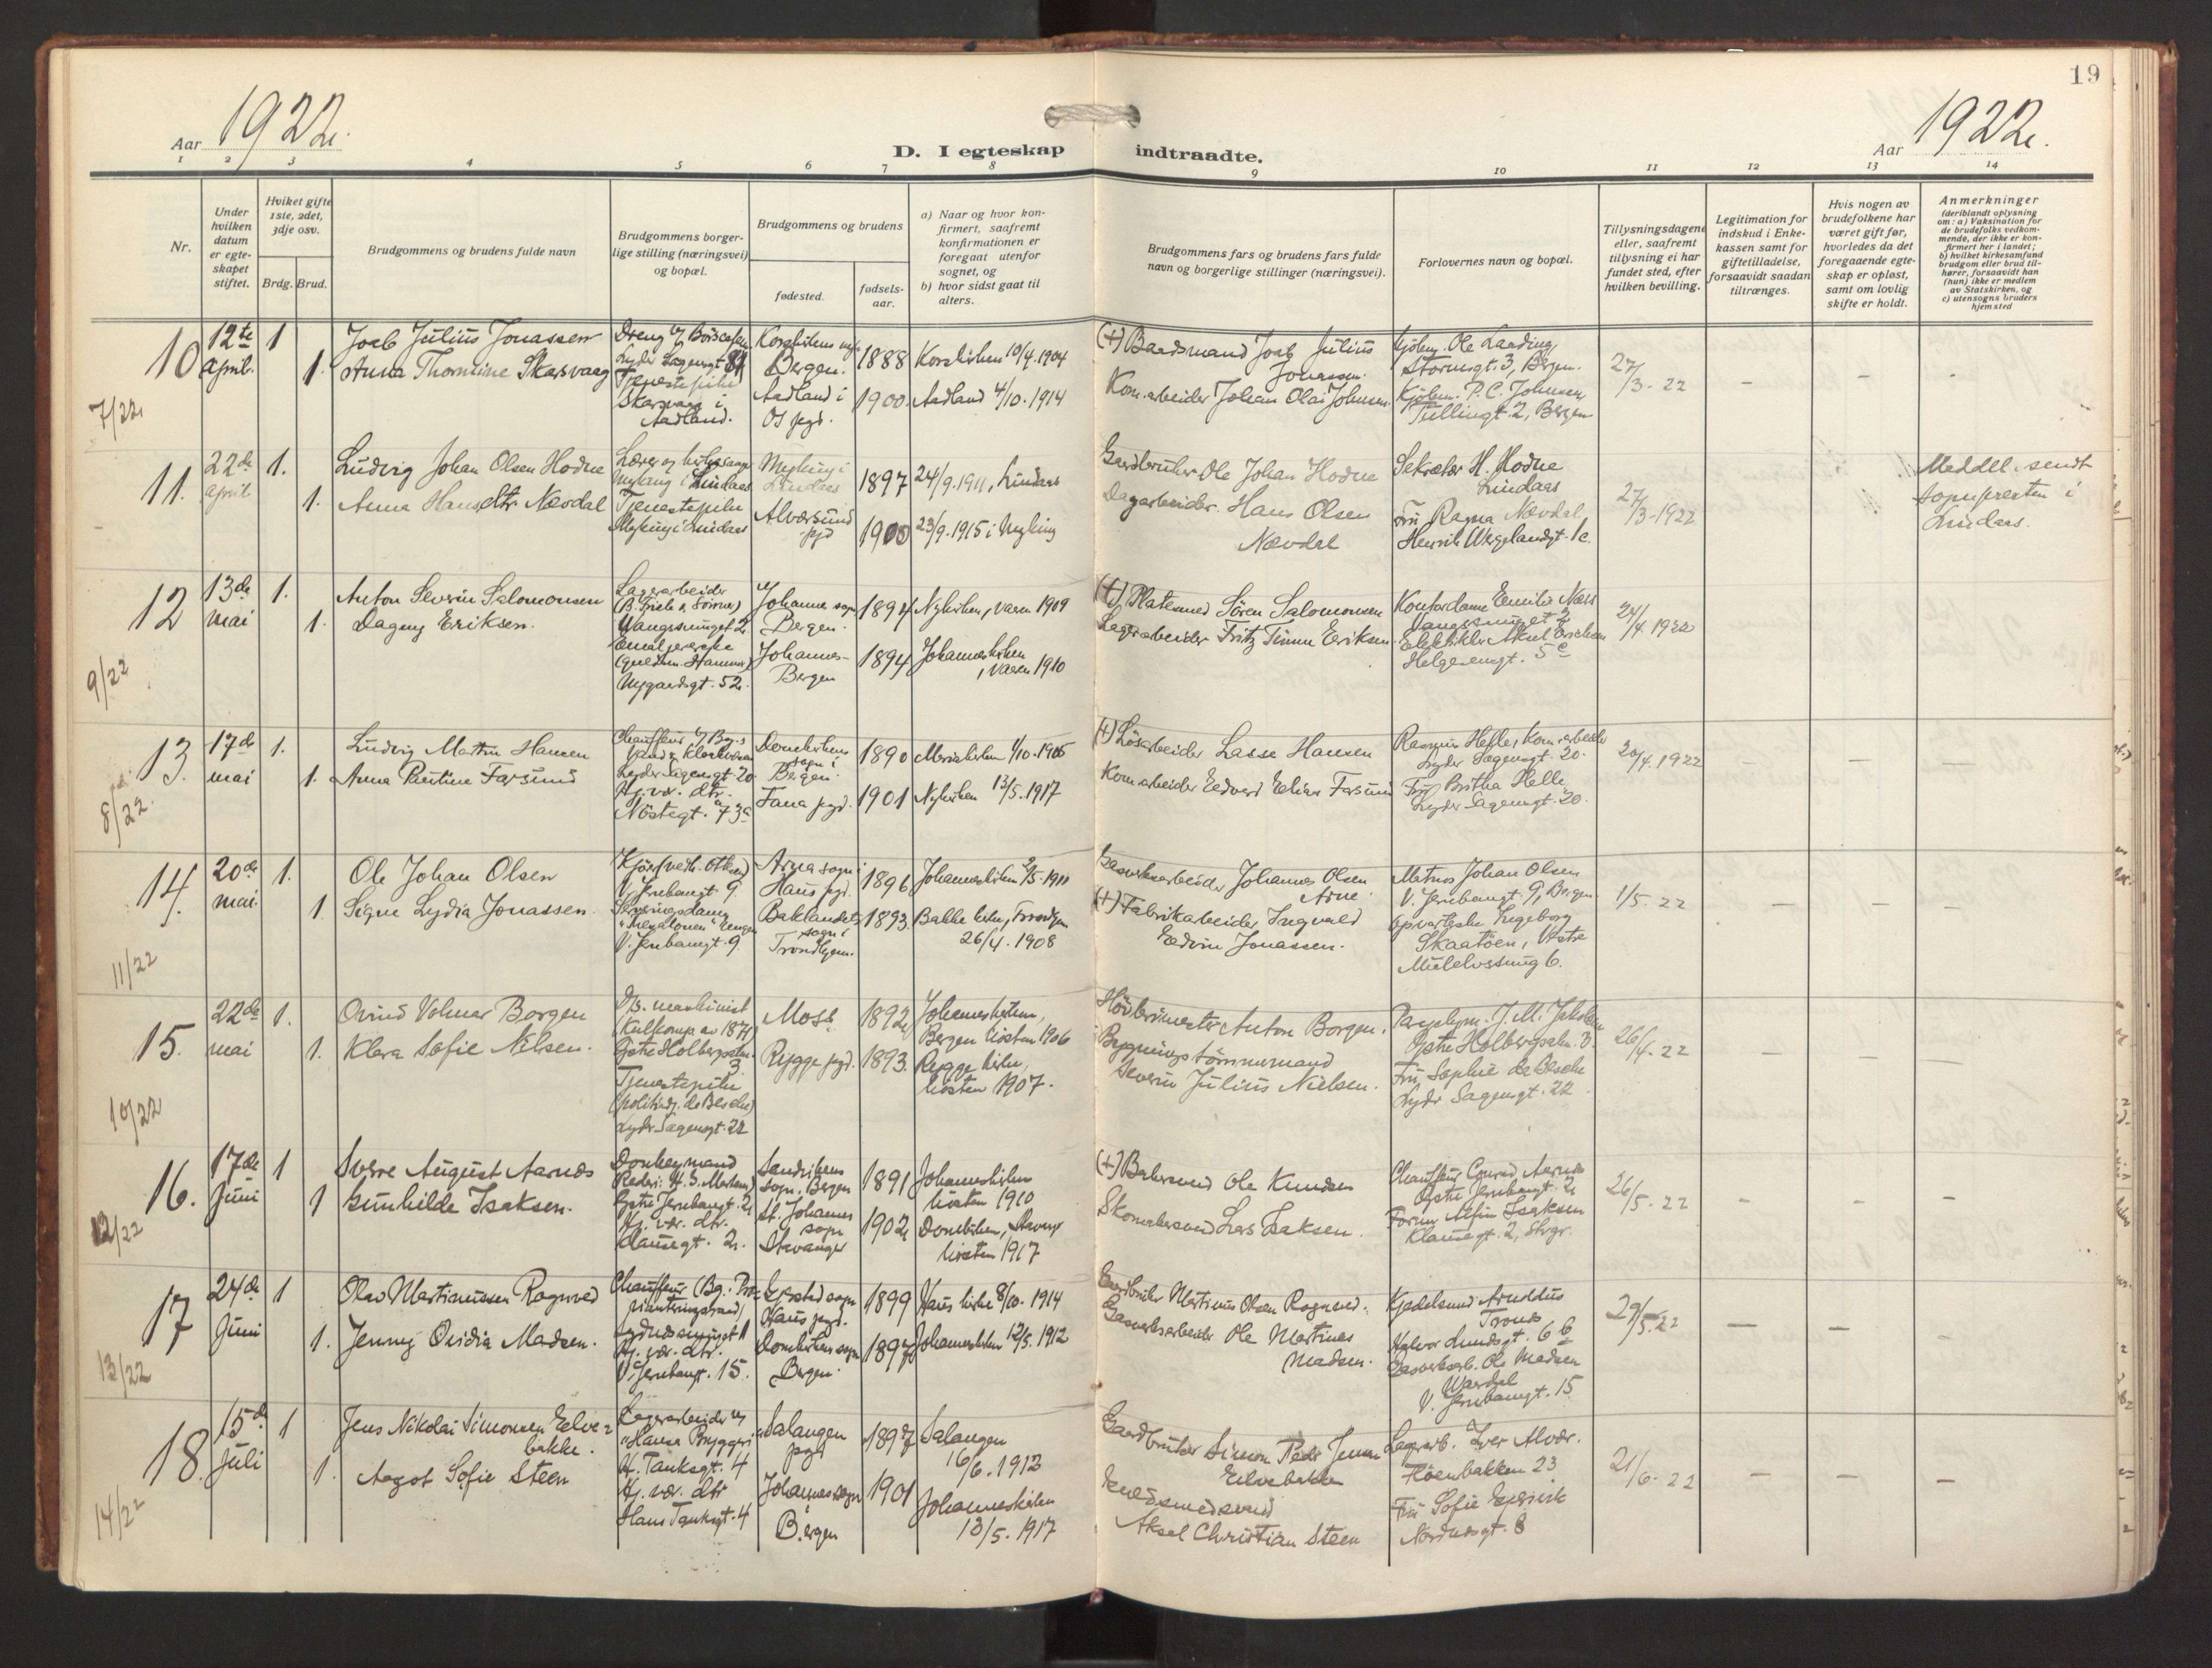 19
Aar 1922.
D. I egteskap indtraadte.
Aar 1922.
1 2 3 4 5 6 7 8 9 10 11 12 13 14
Nr.
Under hvilken datum er egteskapet stiftet.
Hviket gifte 1ste, 2det, 3dje osv.
Brdg. Brud.
Brudgommens og brudens fulde navn
Brudgommens borgerlige stilling (næringsvei) og bopæl.
Brudgommens og brudens
fødested.
fødselsaar.
a) Naar og hvor konfirmert, saafremt konfirmationen er foregaat utenfor sognet, og
b) hvor sidst gaat til alters.
Brudgommens fars og brudens fars fulde navn og borgerlige stillinger (næringsvei).
Forlovernes navn og bopæl.
Tillysningsdagene eller, saafremt tillysning ei har fundet sted, efter hvilken bevilling.
Legitimation for indskud i Enkekassen samt for giftetilladelse, forsaavidt saadan tiltrænges.
Hvis nogen av brudefolkene har været gift før, hvorledes da det foregaaende egteskap er opløst, samt om lovlig skifte er holdt.
Anmerkninger
(deriblandt oplysning om: a) Vaksination for de brudefolks vedkommende, der ikke er konfirmert her i landet;
b) hvilket kirkesamfund brudgom eller brud tilhører, forsaavidt han (hun) ikke er medlem av Statskirken, og
c) utensogns bruders hjemsted
10
7/22
12te april.
1
1.
Joab Julius Jonassen
Anna Thomine Skarsvaag
Lyder Sagensgt 84
Tjenestepike
Skarsvaag i Aadland.
Bergen.
Aadland i Os pgd.
1888
1900.
Korskirken 10/4. 1904
Aadland 4/10. 1914
(+) Baadsmand Joab Julius Jonassen.
Kom.arbeider Johan Olai Johnsen.
Kjøbm. Ole Laading
Stormsgt. 3, Bergen.
Kjøbm. P. C. Johnsen
Tullingt. 2, Bergen
27/3-22
- - -
11.
22de april
1.
1.
Ludvig Johan Olsen Hodne
Anna Hansdtr. Nævdal
Lærer og kirkesanger
Myking i Lindaas
Tjenestepike
Myking i Lindaas
Myking i Lindaas
Alversund pgd
1897
1900
24/9. 1911, Lindaas
23/9. 1915 i Myking
Gardbruker Ole Johan Hodne
Dagarbeider Hans Olsen Nævdal
Sekretær H. Hodne
Lindaas
Fru Ragna Nævdal
Henrik Wergelandsgt. 1c.
27/3-1922
Meddel. sendt sognepresten i Lindaas.
12
9/22
13de mai
1.
1.
Anton Severin Salomonsen
Dagny Eriksen.
Lagerarbeider
Nygaardsgt. 52.
Johannes sogn
Bergen.
Johannes-
Bergen
1894
1894
Nykirken, vaaren 1909
Johanneskirken, vaaren 1910
(+) Platesmed Sören Salomonsen
Lagerarbeider Fritz Timm Eriksen.
Kontordame Emilie Næss
Helgesensgt. 5c
24/4. 1922
- - -
13.
8/22.
17de mai
1.
1.
Ludvig Martin Hansen
Anna Pauline Farsund
Lyder Sagensgt 20.
Hj.vær. dtr.
Nöstegt. 73a
Domkirkens sogn i Bergen.
Fana pgd.
1890
1901
Mariakirken 1/10. 1905
Nykirken 13/5. 1917
(+) Lösarbeider Lasse Hansen
Kom.arbeider Edvard Elias Farsund
Rasmus Helle, Kom.arbeider
Lyder Sagensgt. 20.
Fru Britha Helle
Lyder Sagensgt. 20.
20/4. 1922
- - -
14.
11/22
20de mai
1.
1.
Ole Johan Olsen
Signe Lydia Jonassen.
V. Jernbanegt 9.
Serveringsdame
V. Jernbanegt. 9.
Arna sogn i Haus pgd.
Baklandets sogn i Trondhjem.
1896
1893.
Johanneskirken 2/5. 1911
Bakke kirke, Trondhjem
26/4. 1908
Gasverksarbeider Johannes Olsen Arne
(+) Fabrikarbeider Ingvald Edvin Jonassen.
Matros Johan Olsen
V. Jernbanegt 9, Bergen
Opvarterske Ingeborg Skaatöen, Vestre
Muralvssmug 6.
1/5-22
- - -
15.
10/22
22de mai
1.
1.
Ovind Volmar Borgen
Klara Sofie Nilsen.
D/S. maskinist
(Kulkomp. av 1874)
Øvre Holbergsalm. 3.
Tjenestepike
Lyder Sagensgt. 22
Moss
Rygge pgd.
1892
1893.
Johanneskirken, Bergen hösten 1906
Rygge kirke, hösten 1907.
Hövlerimester Anton Borgen.
Bygningstömmermand
Severin Julius Nielsen.
Øvre Holbergsalm. 3.
Fru Sophie de Besche
Lyder Sagensgt. 22
26/4-22
- - -
16.
12/22
17de juni
1
1
Sverre August Aarnes
Gunhilde Isaksen.
Donkeymand
Østre Jernbanegt. 2
Hj. vær. dtr.
Klausegt. 2.
Sandvikens sogn, Bergen
St. Johannes sogn Stavanger
1891
1902
Johanneskirken hösten 1910
Domkirken, Stavanger hösten 1917
(+) Bakersvend Ole Knudsen
Skomakersvend Lars Isaksen.
Chauffeur Conrad Aarnes
Østre Jernbanegt. 2
Klausegt. 2, Stvgr.
26/5-22
- - -
17
13/22
24de juni
1
1.
Olav Martinussen Rognved
Jenny Ovidia Madsen.
Chauffeur
Hj. vær. dtr.
V. Jernbanegt. 15.
Haus pgd.
Domkirkens sogn
Bergen.
1899
1897
Haus kirke 8/10. 1914
Johanneskirken 12/5. 1912
Gardbruker Martinus Olsen Rognved.
Gasverksarbeider Ole Martines Madsen.
Halvor Lundsgt. 6b
Gasverksarb. Ole Madsen Wardal
V. Jernbanegt. 15
29/5.22
- - -
18.
14/22
15de juli
1
1.
Jens Nikolai Simonsen Eelvebakke.
Aagot Sofie Steen
Lagerarbeider v/
"Hansa Bryggeri"
H. Tanksgt. 4
Hj. vær. dtr
Hans Tanksgt. 4
Salangen pgd
Johannes sogn
Bergen
1897
1901
Salangen
16/6. 1912
Johanneskirken
13/5. 1917
Gaardbruker Simon Peder Jensen Elvebakken
Guldsmedsvend
Aksel Christian Steen
Lagerarb. Iver Alvær.
Flöenbakken 23
Fru Sofie
Nordnesgt. 8
21/6-22
- - -